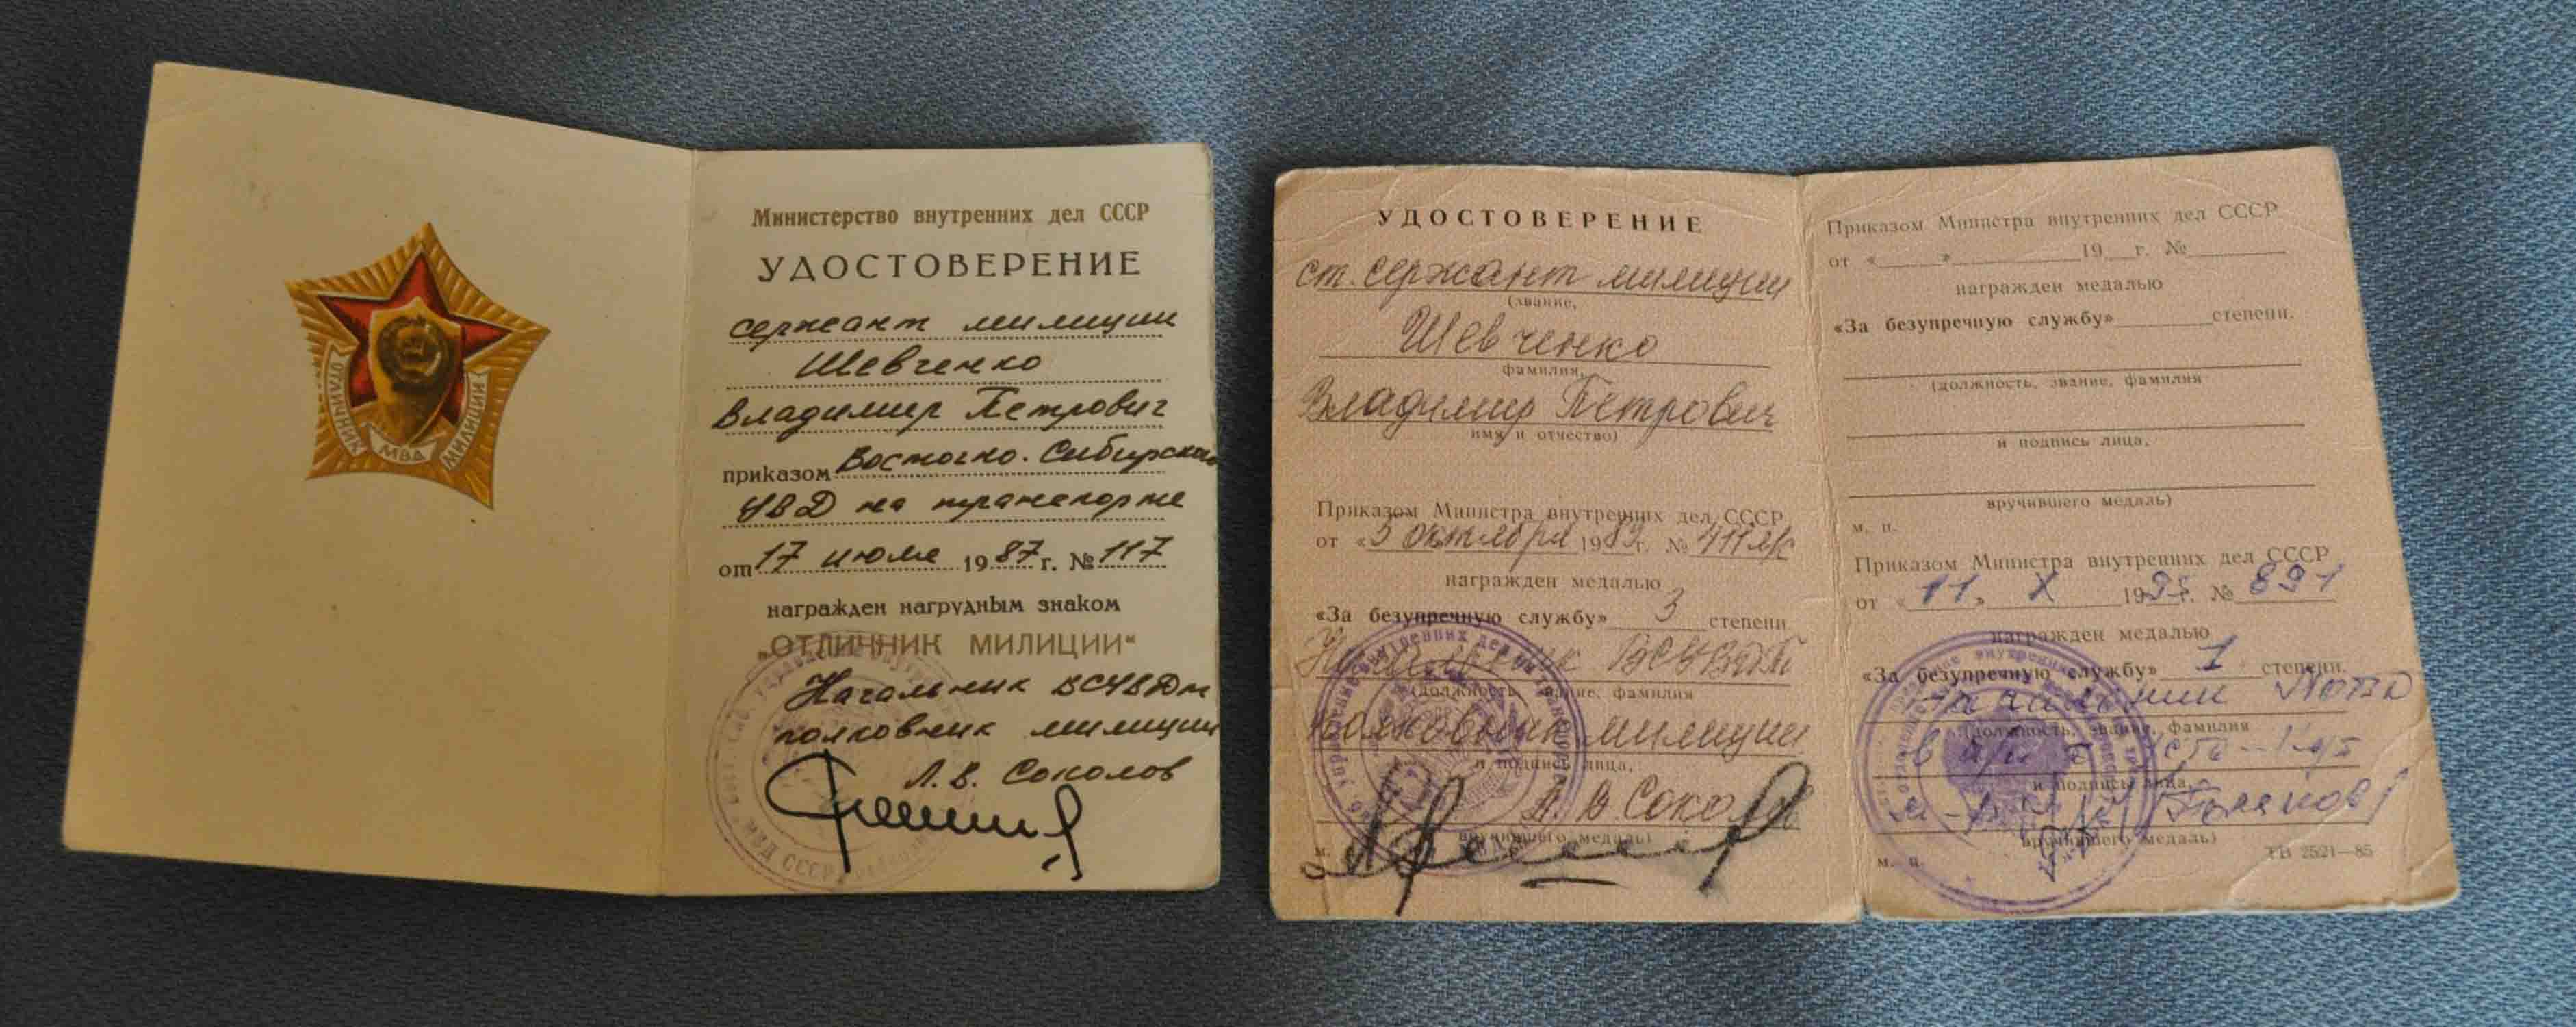 ОТЛИЧНИК
МВД
МИЛИЦИИ
Министерство внутренних дел СССР
УДОСТОВЕРЕНИЕ
сержант милиции
Шевченко
Владимир Петрович
приказом Восточно-Сибирского
УВД на транспорте
от 17 июля 1987 г. № 117
награжден нагрудным знаком
„ОТЛИЧНИК МИЛИЦИИ“
Начальник ВСУВДт
полковник милиции
Л.В. Соколов
МВД СССР
УДОСТОВЕРЕНИЕ
ст. сержант милиции
(звание,
Шевченко
фамилия,
Владимир Петрович
имя и отчество)
Приказом Министра внутренних дел СССР
от «5 октября 19 г. №
награжден медалью
«За безупречную службу» 3 степени
Начальник ВСУВДТ
(должность, звание, фамилия
полковник милиции
и подпись лица,
Л.В. Соколов
вручившего медаль)
м.
Приказом Министра внутренних дел СССР
от « » 19 г. №
награжден медалью
«За безупречную службу» степени.
(должность, звание, фамилия
и подпись лица,
вручившего медаль)
м. п.
Приказом Министра внутренних дел СССР
от «11» X 19 г. № 891
награжден медалью
«За безупречную службу» 1 степени.
Начальник ЛОВД
(должность, звание, фамилия
и подпись лица,
вручившего медаль)
м. п.
ТВ 2521—85